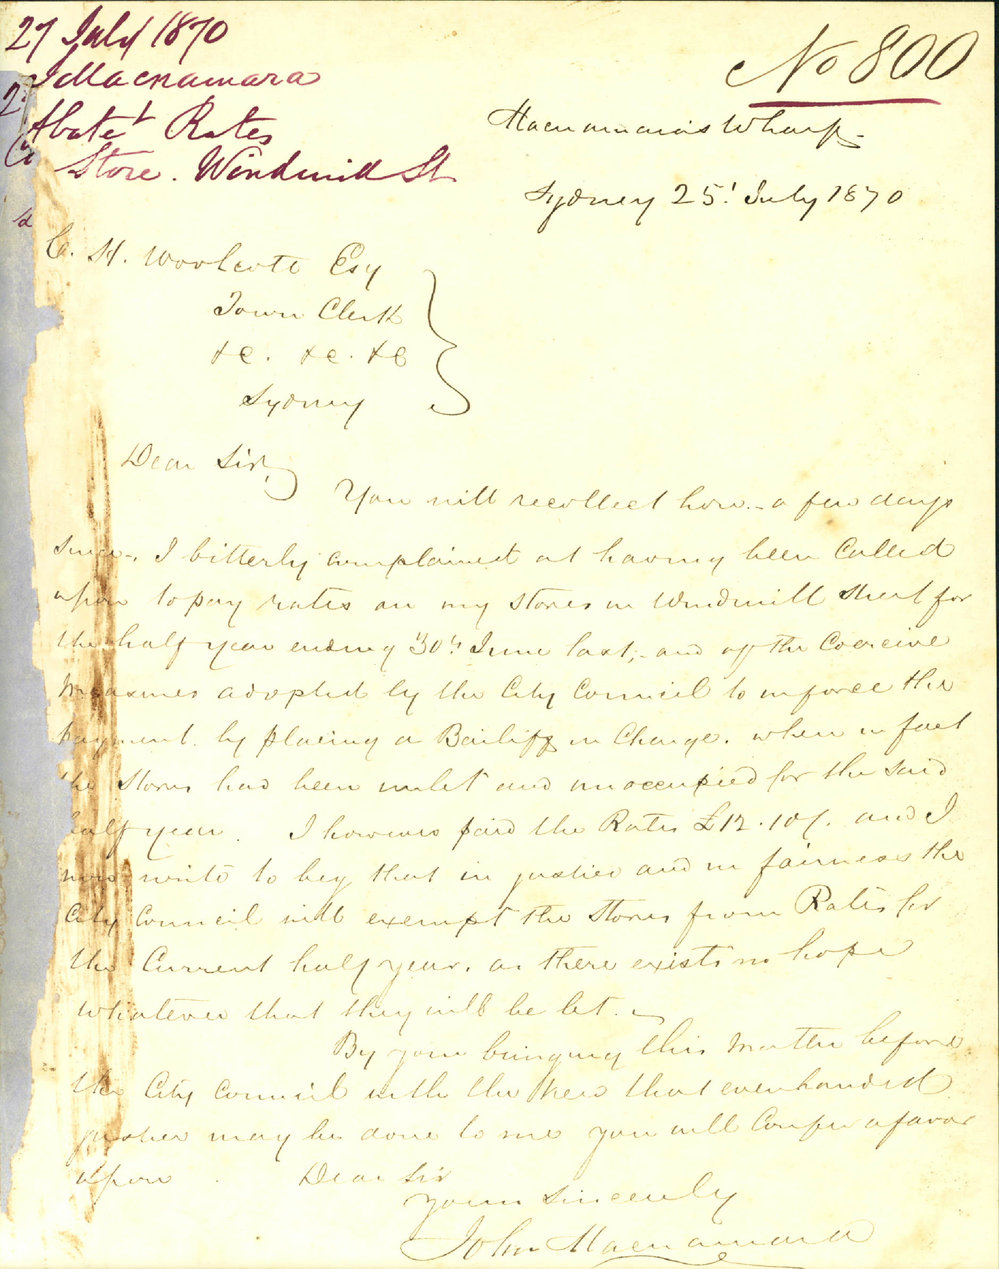 27 July 1870
J Macnamara
Abatet Rates
Store. Windmill St
No 800
Macnamara's Wharf
Sydney 25t July 1870
C. H. Woolcott Esq
Town Clerk
&c. &c. &c
Sydney
Dear Sir,
You will recollect how - a few days
since -, I bitterly complained at having been Called
upon to pay rates on my Stores in Windmill Street for
the half year ending 30t June last, - and of the Coercive
Measures adopted by the City Council to inforce the
payment by placing a Bailiff in Charge. when in fact
the Stores had been unlet and unoccupied for the said
half year. I however paid the Rates £12.10/. and I
now write to beg that in justice and in fairness the
City Council will exempt the Stores from Rates for
the Current half year. as there exists no hope
whatever that they will be let. -
By your bringing this Matter before
the City Council with the View that evenhanded
justice may be done to me you will Confer a favor
upon Dear Sir
Yours Sincerely
John Macnamara